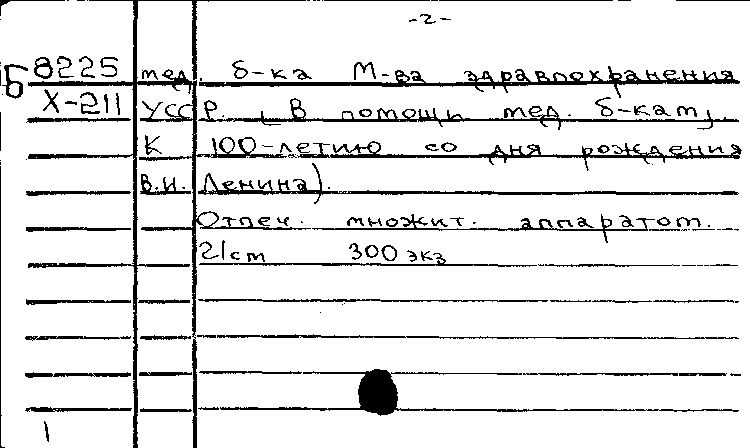 -2-
Б 8225 мед. б-ка М-ва здравоохранения
X-211 УССР. (В помощи мед. б-кам,
К 100-летию со дня рождения
В.И. Ленина).
Отпеч. множит. аппаратом.
21cm 300 экз
1